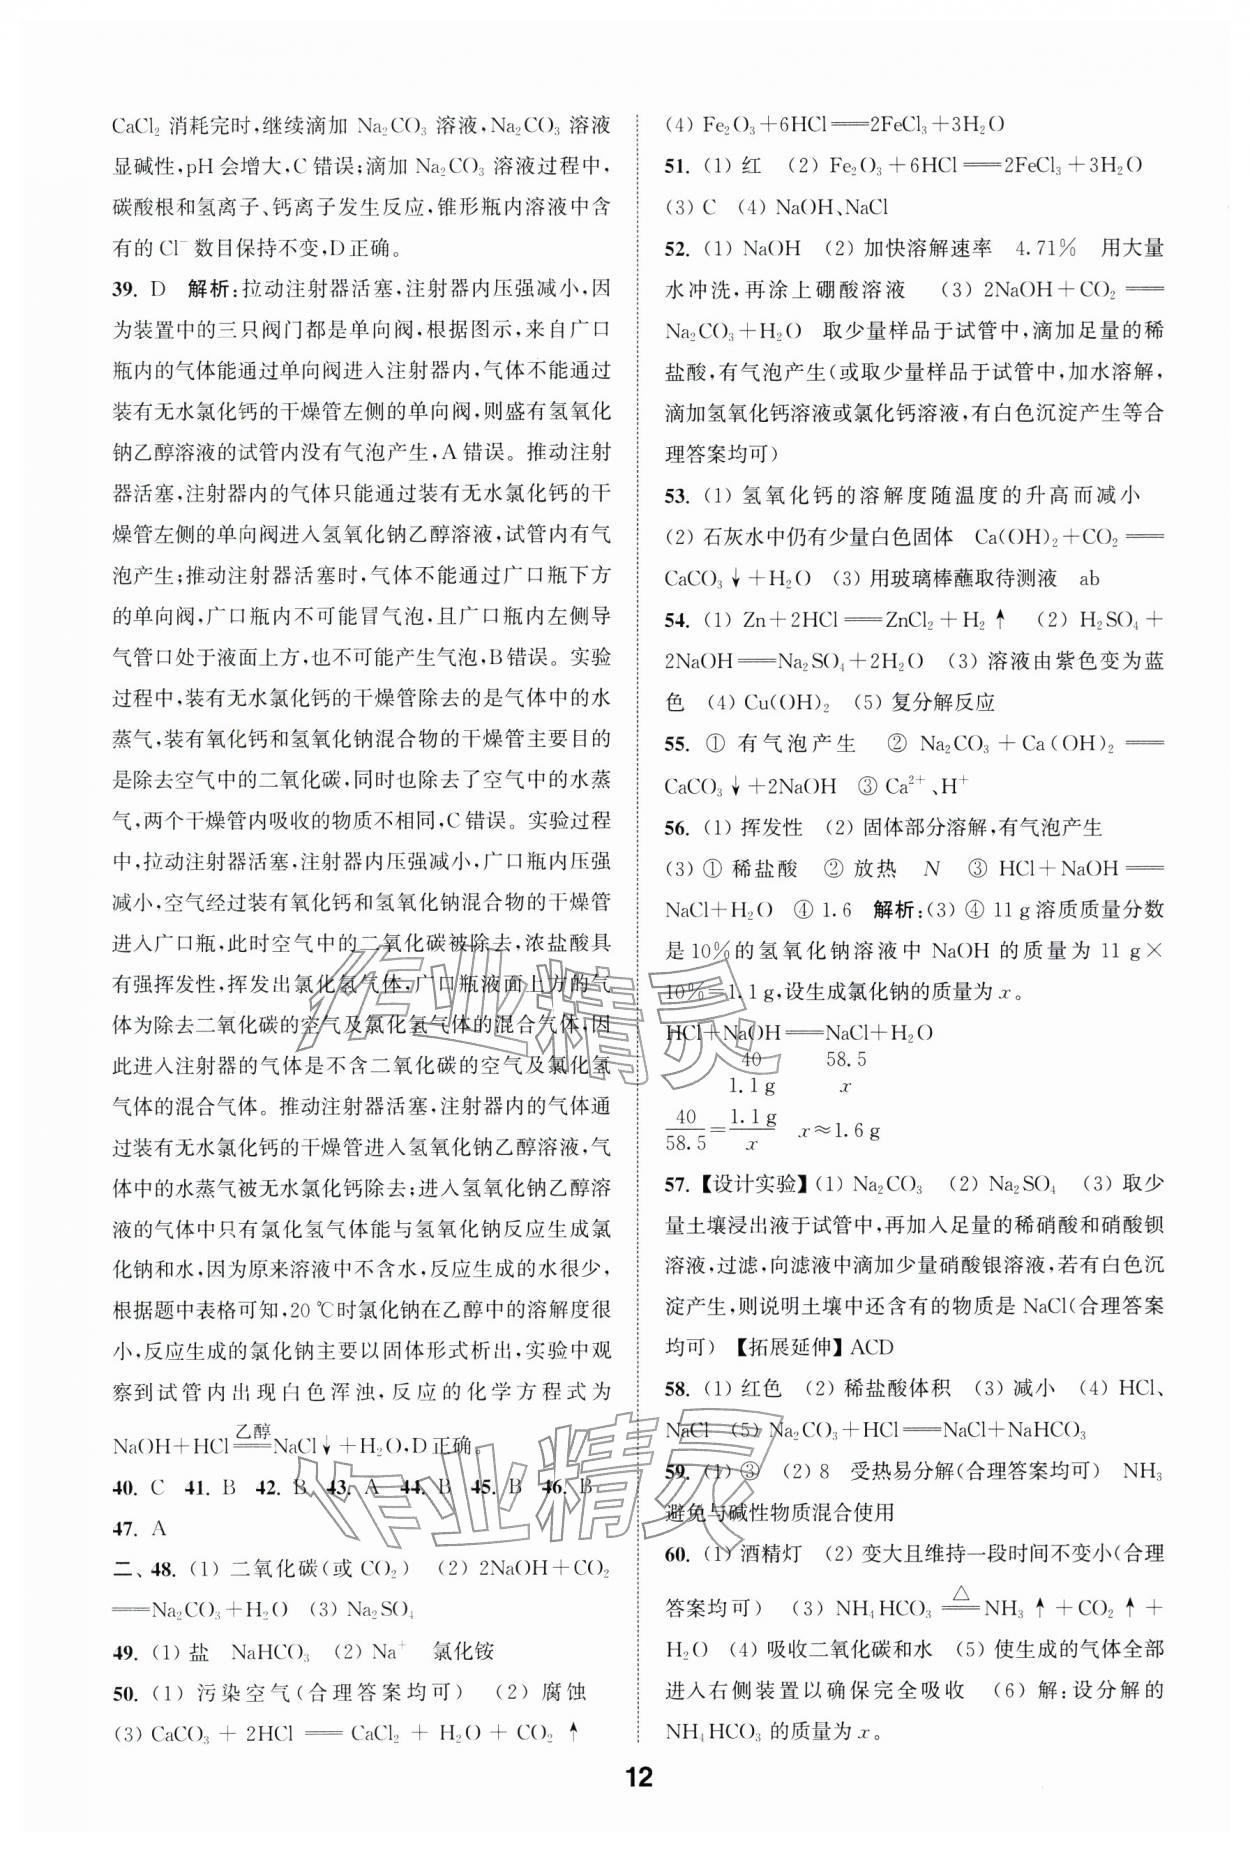 CaCl₂ 消耗完时,继续滴加 Na₂CO₃ 溶液,Na₂CO₃ 溶液
显碱性,pH 会增大,C 错误;滴加 Na₂CO₃ 溶液过程中,
碳酸根和氢离子、钙离子发生反应,锥形瓶内溶液中含
有的 Cl⁻ 数目保持不变,D 正确。
39. D 解析:拉动注射器活塞,注射器内压强减小,因
为装置中的三只阀门都是单向阀,根据图示,来自广口
瓶内的气体能通过单向阀进入注射器内,气体不能通过
装有无水氯化钙的干燥管左侧的单向阀,则盛有氢氧化
钠乙醇溶液的试管内没有气泡产生,A 错误。推动注射
器活塞,注射器内的气体只能通过装有无水氯化钙的干
燥管左侧的单向阀进入氢氧化钠乙醇溶液,试管内有气
泡产生;推动注射器活塞时,气体不能通过广口瓶下方
的单向阀,广口瓶内不可能冒气泡,且广口瓶内左侧导
气管口处于液面上方,也不可能产生气泡,B 错误。实验
过程中,装有无水氯化钙的干燥管除去的是气体中的水
蒸气,装有氧化钙和氢氧化钠混合物的干燥管主要目的
是除去空气中的二氧化碳,同时也除去了空气中的水蒸
气,两个干燥管内吸收的物质不相同,C 错误。实验过程
中,拉动注射器活塞,注射器内压强减小,广口瓶内压强
减小,空气经过装有氧化钙和氢氧化钠混合物的干燥管
进入广口瓶,此时空气中的二氧化碳被除去,浓盐酸具
有强挥发性,挥发出氯化氢气体,广口瓶液面上方的气
体为除去二氧化碳的空气及氯化氢气体的混合气体,因
此进入注射器的气体是不含二氧化碳的空气及氯化氢
气体的混合气体。推动注射器活塞,注射器内的气体通
过装有无水氯化钙的干燥管进入氢氧化钠乙醇溶液,气
体中的水蒸气被无水氯化钙除去;进入氢氧化钠乙醇溶
液的气体中只有氯化氢气体能与氢氧化钠反应生成氯
化钠和水,因为原来溶液中不含水,反应生成的水很少,
根据题中表格可知,20 ℃时氯化钠在乙醇中的溶解度很
小,反应生成的氯化钠主要以固体形式析出,实验中观
察到试管内出现白色浑浊,反应的化学方程式为
NaOH+HCl══乙醇══NaCl↓+H₂O,D 正确。
40. C 41. B 42. B 43. A 44. B 45. B 46. B
47. A
二、48. (1) 二氧化碳(或 CO₂) (2) 2NaOH+CO₂
══Na₂CO₃+H₂O (3) Na₂SO₄
49. (1) 盐 NaHCO₃ (2) Na⁺ 氯化铵
50. (1) 污染空气(合理答案均可) (2) 腐蚀
(3) CaCO₃ + 2HCl ══ CaCl₂ + H₂O + CO₂ ↑
(4) Fe₂O₃+6HCl══2FeCl₃+3H₂O
51. (1) 红 (2) Fe₂O₃+6HCl══2FeCl₃+3H₂O
(3) C (4) NaOH、NaCl
52. (1) NaOH (2) 加快溶解速率 4.71% 用大量
水冲洗,再涂上硼酸溶液 (3) 2NaOH+CO₂══
Na₂CO₃+H₂O 取少量样品于试管中,滴加足量的稀
盐酸,有气泡产生(或取少量样品于试管中,加水溶解,
滴加氢氧化钙溶液或氯化钙溶液,有白色沉淀产生等合
理答案均可)
53. (1) 氢氧化钙的溶解度随温度的升高而减小
(2) 石灰水中仍有少量白色固体 Ca(OH)₂+CO₂══
CaCO₃↓+H₂O (3) 用玻璃棒蘸取待测液 ab
54. (1) Zn+2HCl══ZnCl₂+H₂↑ (2) H₂SO₄+
2NaOH══Na₂SO₄+2H₂O (3) 溶液由紫色变为蓝
色 (4) Cu(OH)₂ (5) 复分解反应
55. ① 有气泡产生 ② Na₂CO₃+Ca(OH)₂══
CaCO₃↓+2NaOH ③ Ca²⁺、H⁺
56. (1) 挥发性 (2) 固体部分溶解,有气泡产生
(3) ① 稀盐酸 ② 放热 N ③ HCl+NaOH══
NaCl+H₂O ④ 1.6 解析:(3) ④ 11 g 溶质质量分数
是 10%的氢氧化钠溶液中 NaOH 的质量为 11 g×
10%=1.1 g,设生成氯化钠的质量为 x。
HCl+NaOH══NaCl+H₂O
40 58.5
1.1 g x
40/58.5=1.1 g/x x≈1.6 g
57. 【设计实验】(1) Na₂CO₃ (2) Na₂SO₄ (3) 取少
量土壤浸出液于试管中,再加入足量的稀硝酸和硝酸钡
溶液,过滤,向滤液中滴加少量硝酸银溶液,若有白色沉
淀产生,则说明土壤中还含有的物质是 NaCl(合理答案
均可) 【拓展延伸】ACD
58. (1) 红色 (2) 稀盐酸体积 (3) 减小 (4) HCl、
NaCl (5) Na₂CO₃+HCl══NaCl+NaHCO₃
59. (1) ③ (2) 8 受热易分解(合理答案均可) NH₃
避免与碱性物质混合使用
60. (1) 酒精灯 (2) 变大且维持一段时间不变小(合理
答案均可) (3) NH₄HCO₃══△══NH₃↑+CO₂↑+
H₂O (4) 吸收二氧化碳和水 (5) 使生成的气体全部
进入右侧装置以确保完全吸收 (6) 解:设分解的
NH₄HCO₃ 的质量为 x。
12
作业精灵
作业精灵